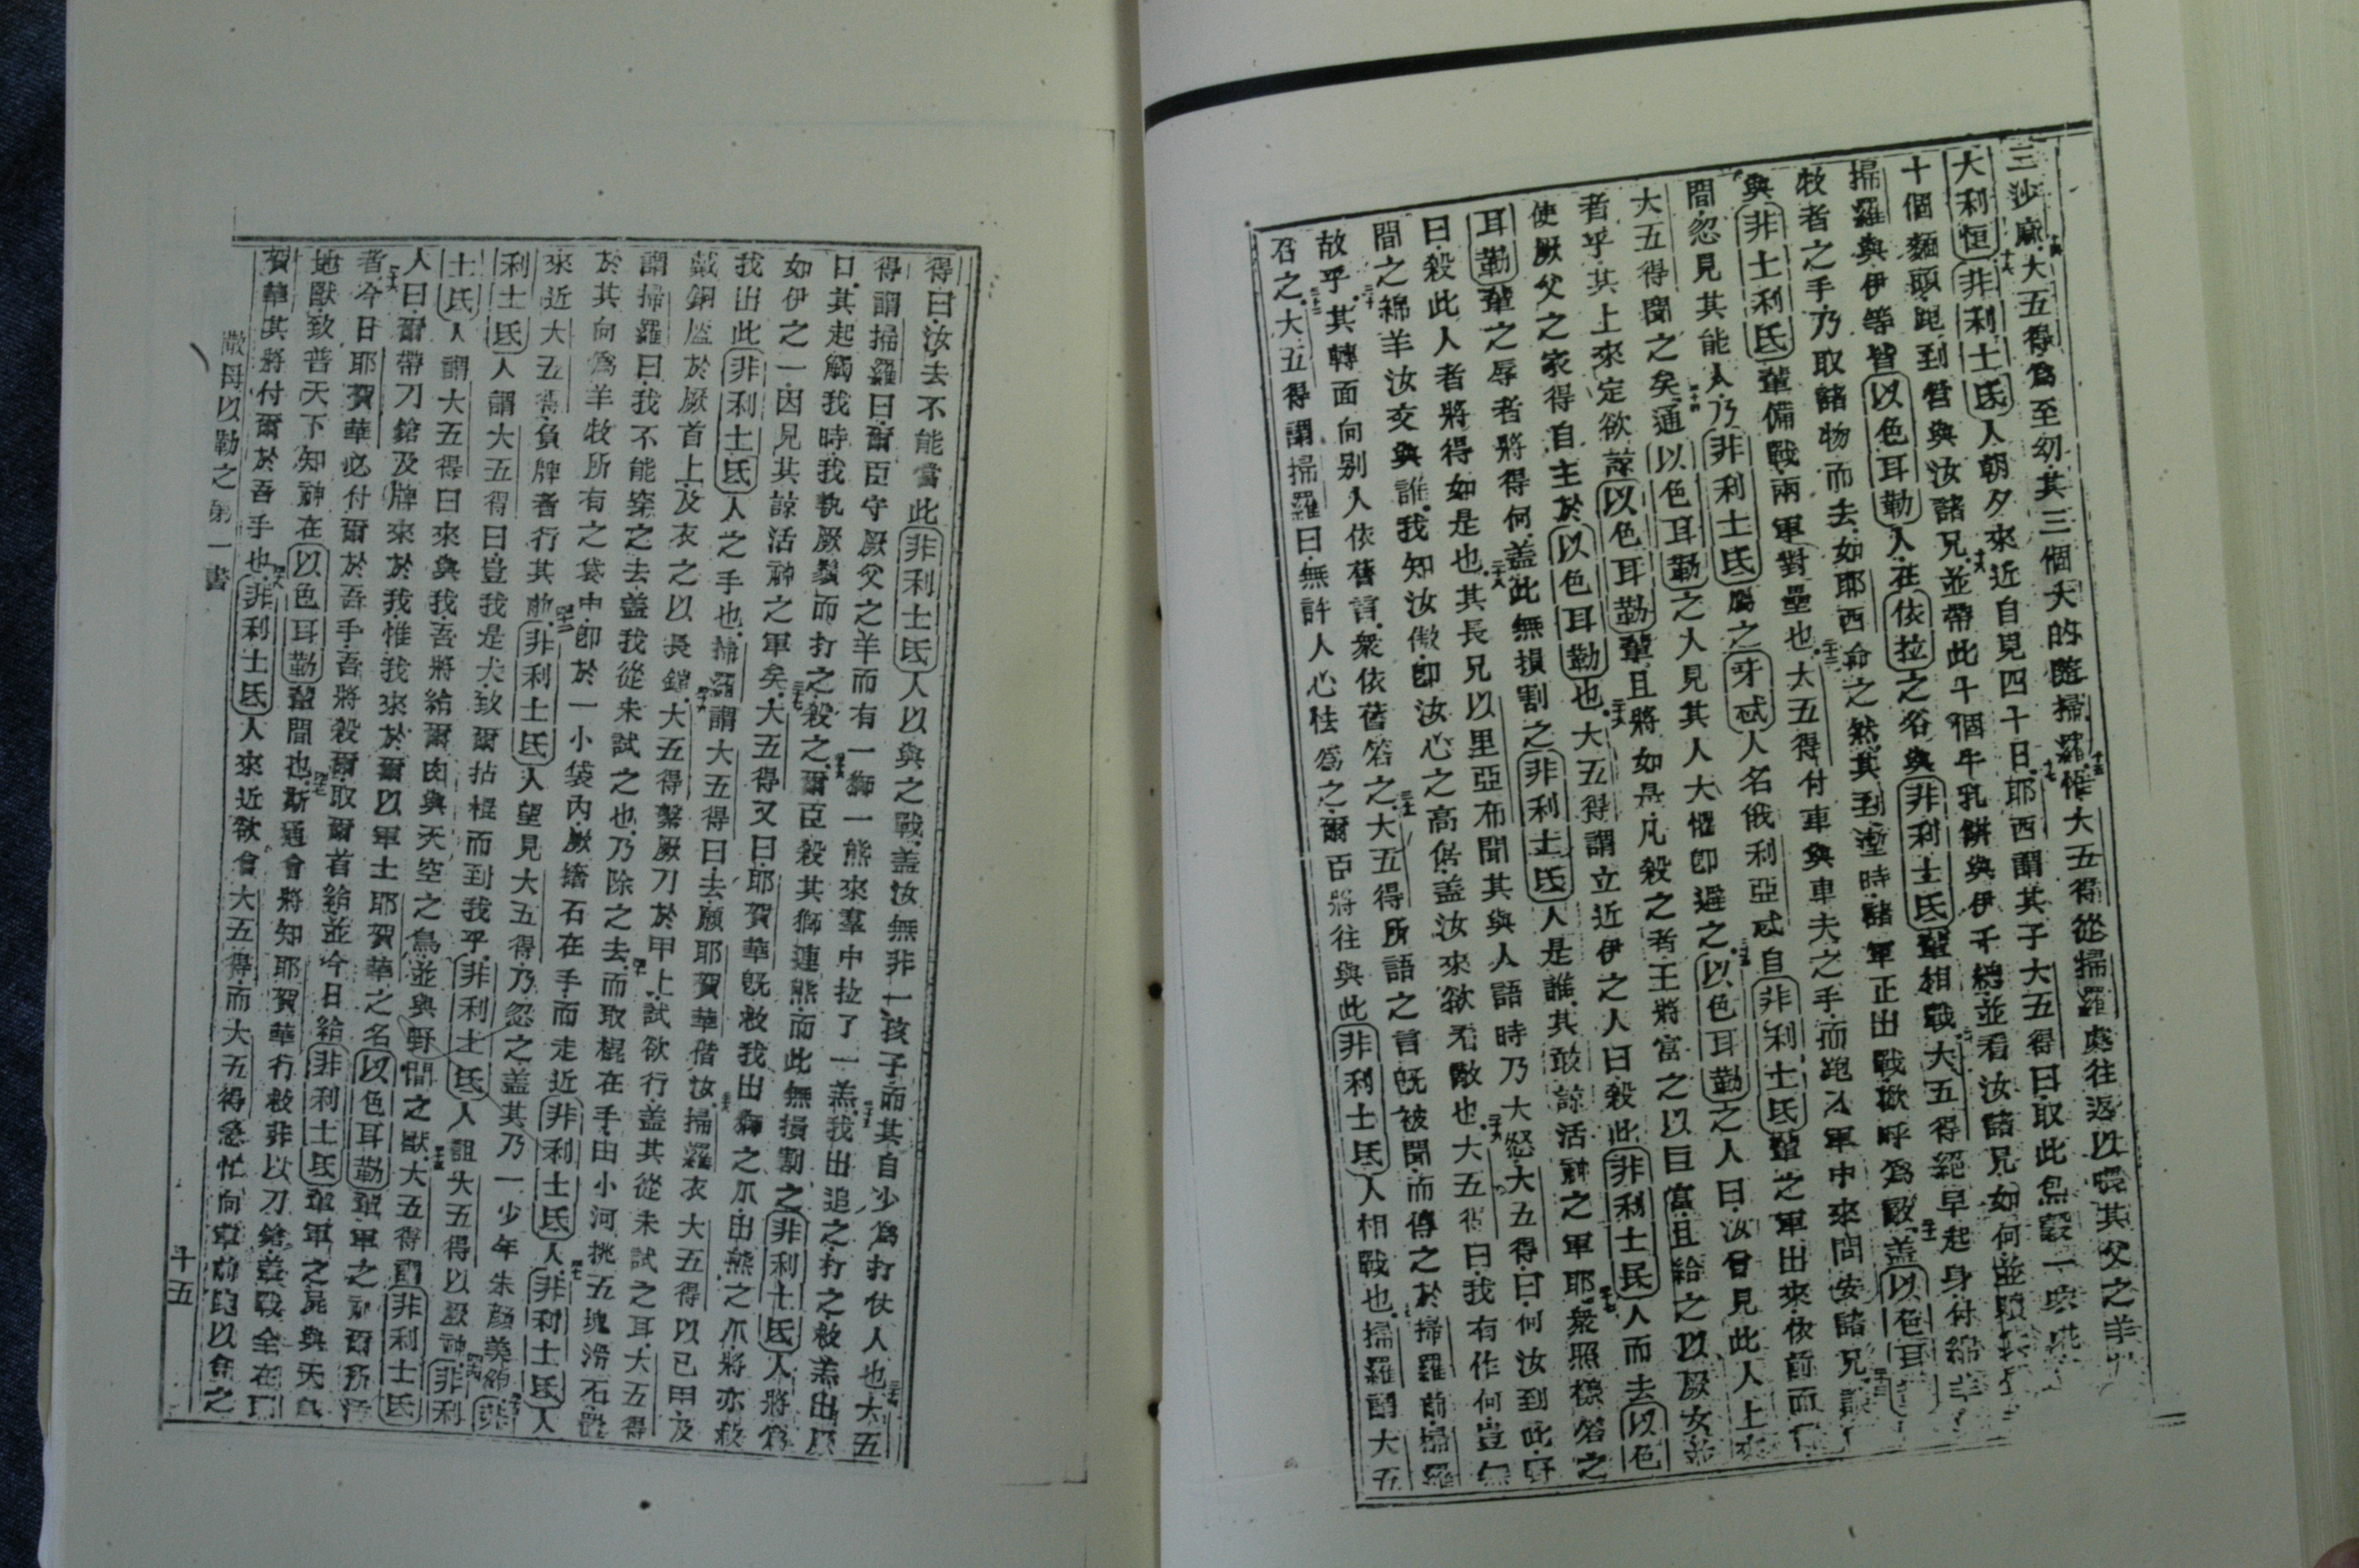 三沙麻大五得為至幼其三個大的隨掃羅惟大五得從掃羅處往返以喂其父之羊
大利恒非利士氏人朝夕來近自見四十日耶西謂其子大五得曰取此烏穀一
十個麵頭跑到營與汝諸兄並帶此十個牛乳餅與伊千總並看汝諸兄如何並
掃羅與伊等皆以色耳勒人在依拉之谷與非利士氏輩相戰大五得絕早起身付綿羊
牧者之手乃取諸物而去如耶西命之然其到塹時諸軍正出戰歡呼為敵蓋以色耳
與非士利氏輩備戰兩軍對壘也大五得付車與車夫之手而跑入軍中來問安諸兄
間忽見其能人乃非利士氏屬之牙忒人名俄利亞忒自非利士氏輩之軍出來依前而
大五得聞之矣通以色耳勒之人見其人大懼即避之以色耳勒之人曰汝曾見此人上來
者乎其上來定欲諒以色耳勒輩且將如是凡殺之者王將富之以巨富且給之以厥女並
使厥父之家得自主於以色耳勒也大五得謂立近伊之人曰殺此非利士氏人而去以色
耳勒輩之辱者將得何蓋此無損割之非利士氏人是誰其敢諒活神之軍耶衆照樣答之
曰殺此人者將得如是也其長兄以里亞布聞其與人語時乃大怒大五得曰何汝到此野
間之綿羊汝交與誰我知汝傲即汝心之高倨蓋汝來欲看戰也大五得曰我有作何豈無
故乎其轉面向别人依舊言衆依舊答之大五得所語之言既被聞而傳之於掃羅前掃羅
召之大五得謂掃羅曰無許人心怯為之爾臣將往與此非利士氏人相戰也掃羅謂大五
得曰汝去不能當此非利士氏人以與之戰蓋汝無非一孩子而其自少為打仗人也大五
得謂掃羅曰爾臣守厥父之羊而有一獅一熊來羣中拉了一羔我出追之打之救羔出厥
口其起觸我時我執厥鬚而打之殺之爾臣殺其獅連熊而此無損割之非利士氏人將為
如伊之一因見其諒活神之軍矣大五得又曰耶賀華既救我出獅之爪出熊之爪將亦救
我出此非利士氏人之手也掃羅謂大五得曰去願耶賀華偕汝掃羅衣大五得以己甲及
戴銅盔於厥首上及衣之以長鎖大五得繫厥刀於甲上試欲行蓋其從未試之耳大五得
謂掃羅曰我不能穿之去蓋我從未試之也乃除之去而取棍在手由小河挑五塊滑石
於其向為羊牧所有之袋中即於一小袋內厥擔石在手而走近非利士氏人非利士氏人
來近大五得負牌者行其前非利士氏人望見大五得乃忽之蓋其乃一少年朱顏美貌非
利士氏人謂大五得曰豈我是犬致爾拈棍而到我乎非利士氏人詛大五得以厥神非利
士氏人謂大五得曰來與我吾將給爾肉與天空之鳥並與野間之獸大五得謂非利士氏
人曰爾帶刀鎗及牌來於我惟我來於爾以軍士耶賀華之名以色耳勒輩軍之神爾所
者今日耶賀華必付爾於吾手吾將殺爾取爾首給並今日給非利士氏輩軍之屍與天
地獸致普天下知神在以色耳勒輩間也斯通會將知耶賀華行救非以刀鎗蓋戰全在耶
賀華其將付爾於吾手也非利士氏人來近欲會大五得而大五得急忙向軍前跑以會之
撒母以勒之第一書
十五